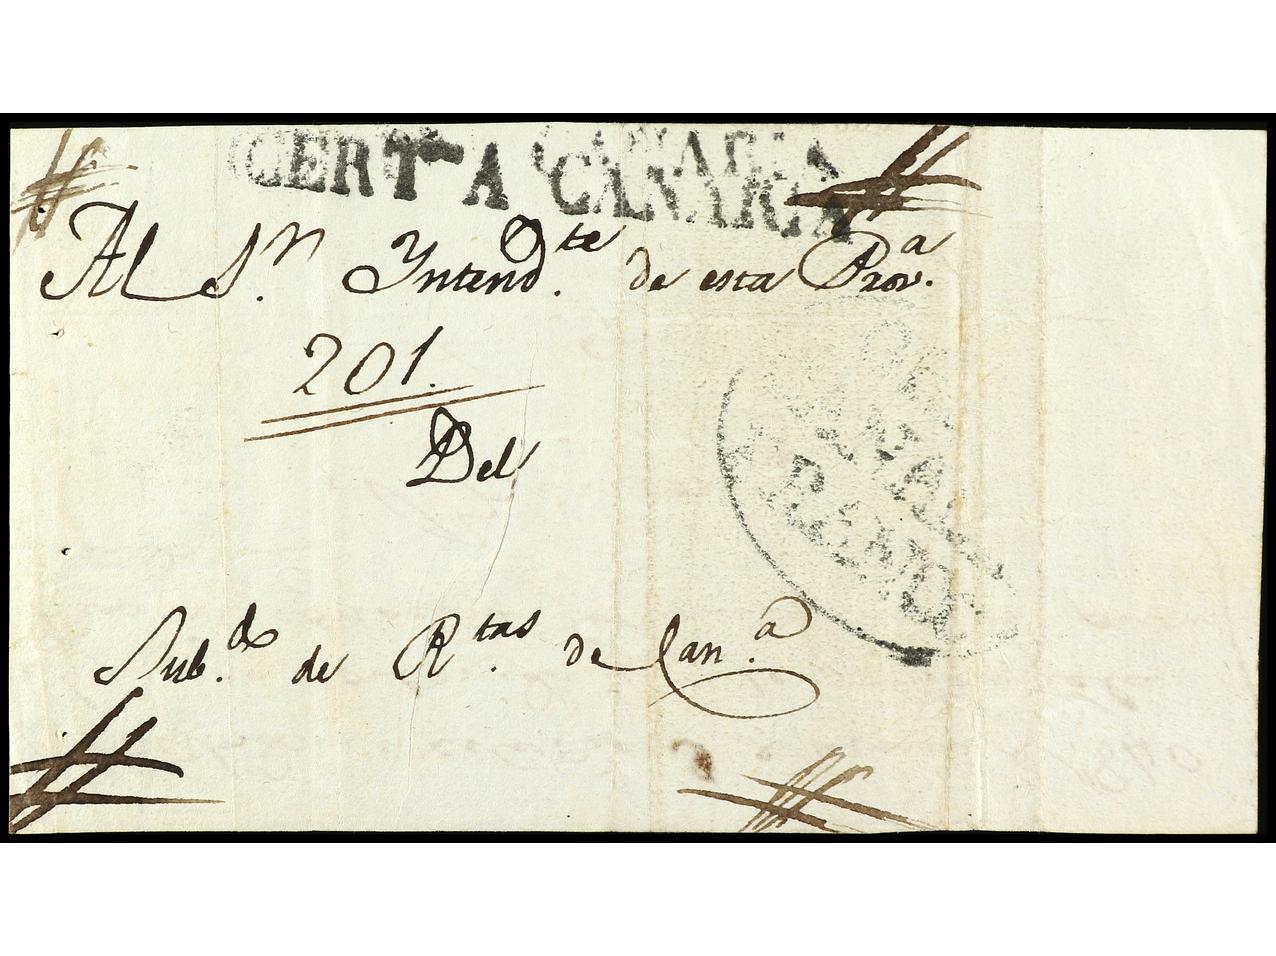 CERT A CANARIA
Al S.r Yntend.te de esta Prov.a
201.
Del
Sub.do de R.tas de Can.a